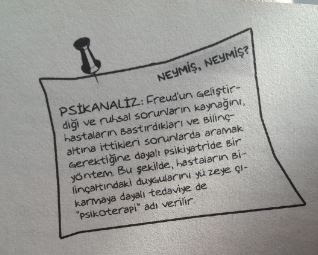 NEYMİŞ, NEYMİŞ?
PSİKANALİZ: Freud'un Geliştir-
diği ve ruhsal sorunların kaynağını,
hastaların Bastırdıkları ve Bilinç-
altına ittikleri sorunlarda aramak
Gerektiğine dayalı psikiyatride Bir
yöntem. Bu şekilde, hastaların Bi-
linçaltındaki duygularını yüzeye çı-
karmaya dayalı tedaviye de
"psikoterapi" adı verilir